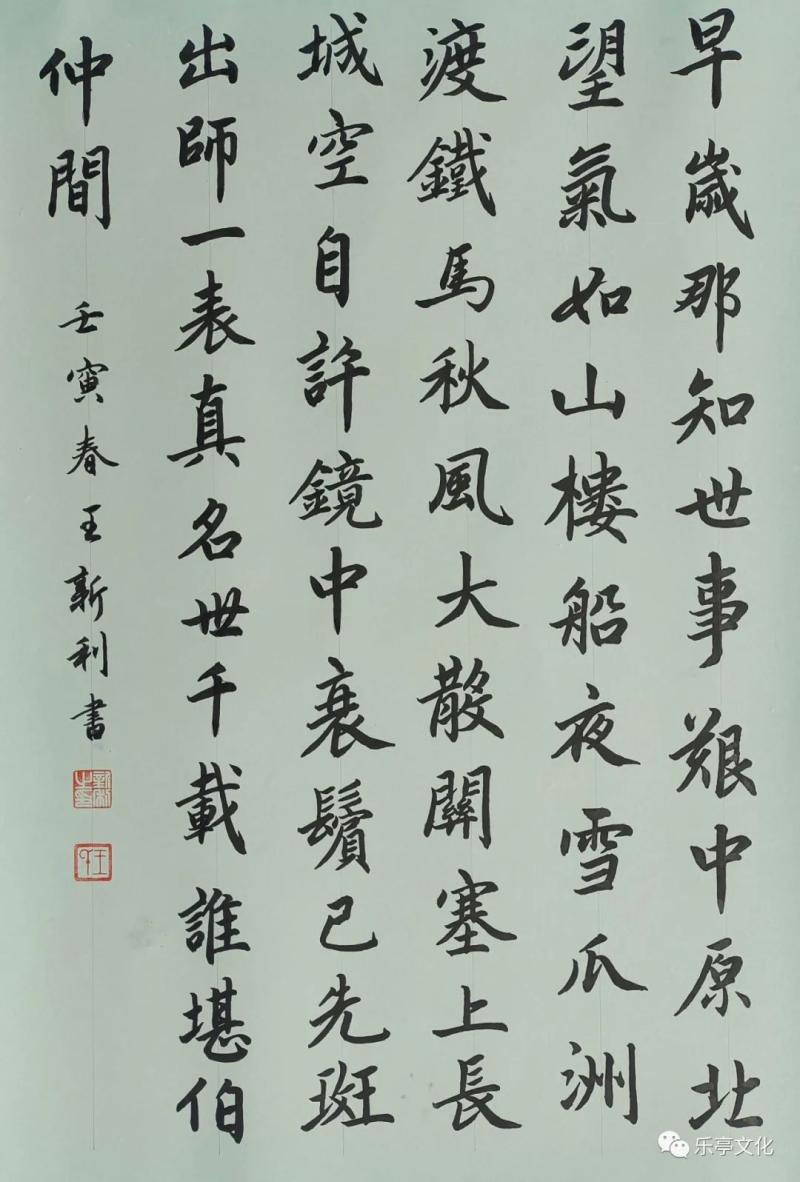 早歲那知世事艱中原北
望氣如山樓船夜雪瓜洲
渡鐵馬秋風大散關塞上長
城空自許鏡中衰鬢已先斑
出師一表真名世千載誰堪伯
仲間
壬寅春王新利書
乐亭文化